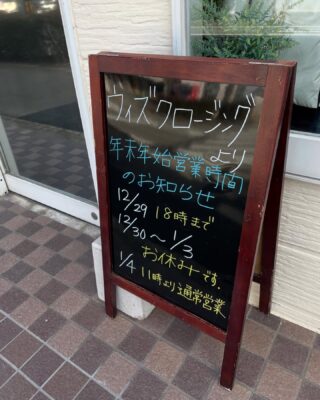 ウィズクロージング
より
年末年始営業時間
のお知らせ
12/29 18時まで
12/30〜1/3
お休みです。
1/4 11時より通常営業